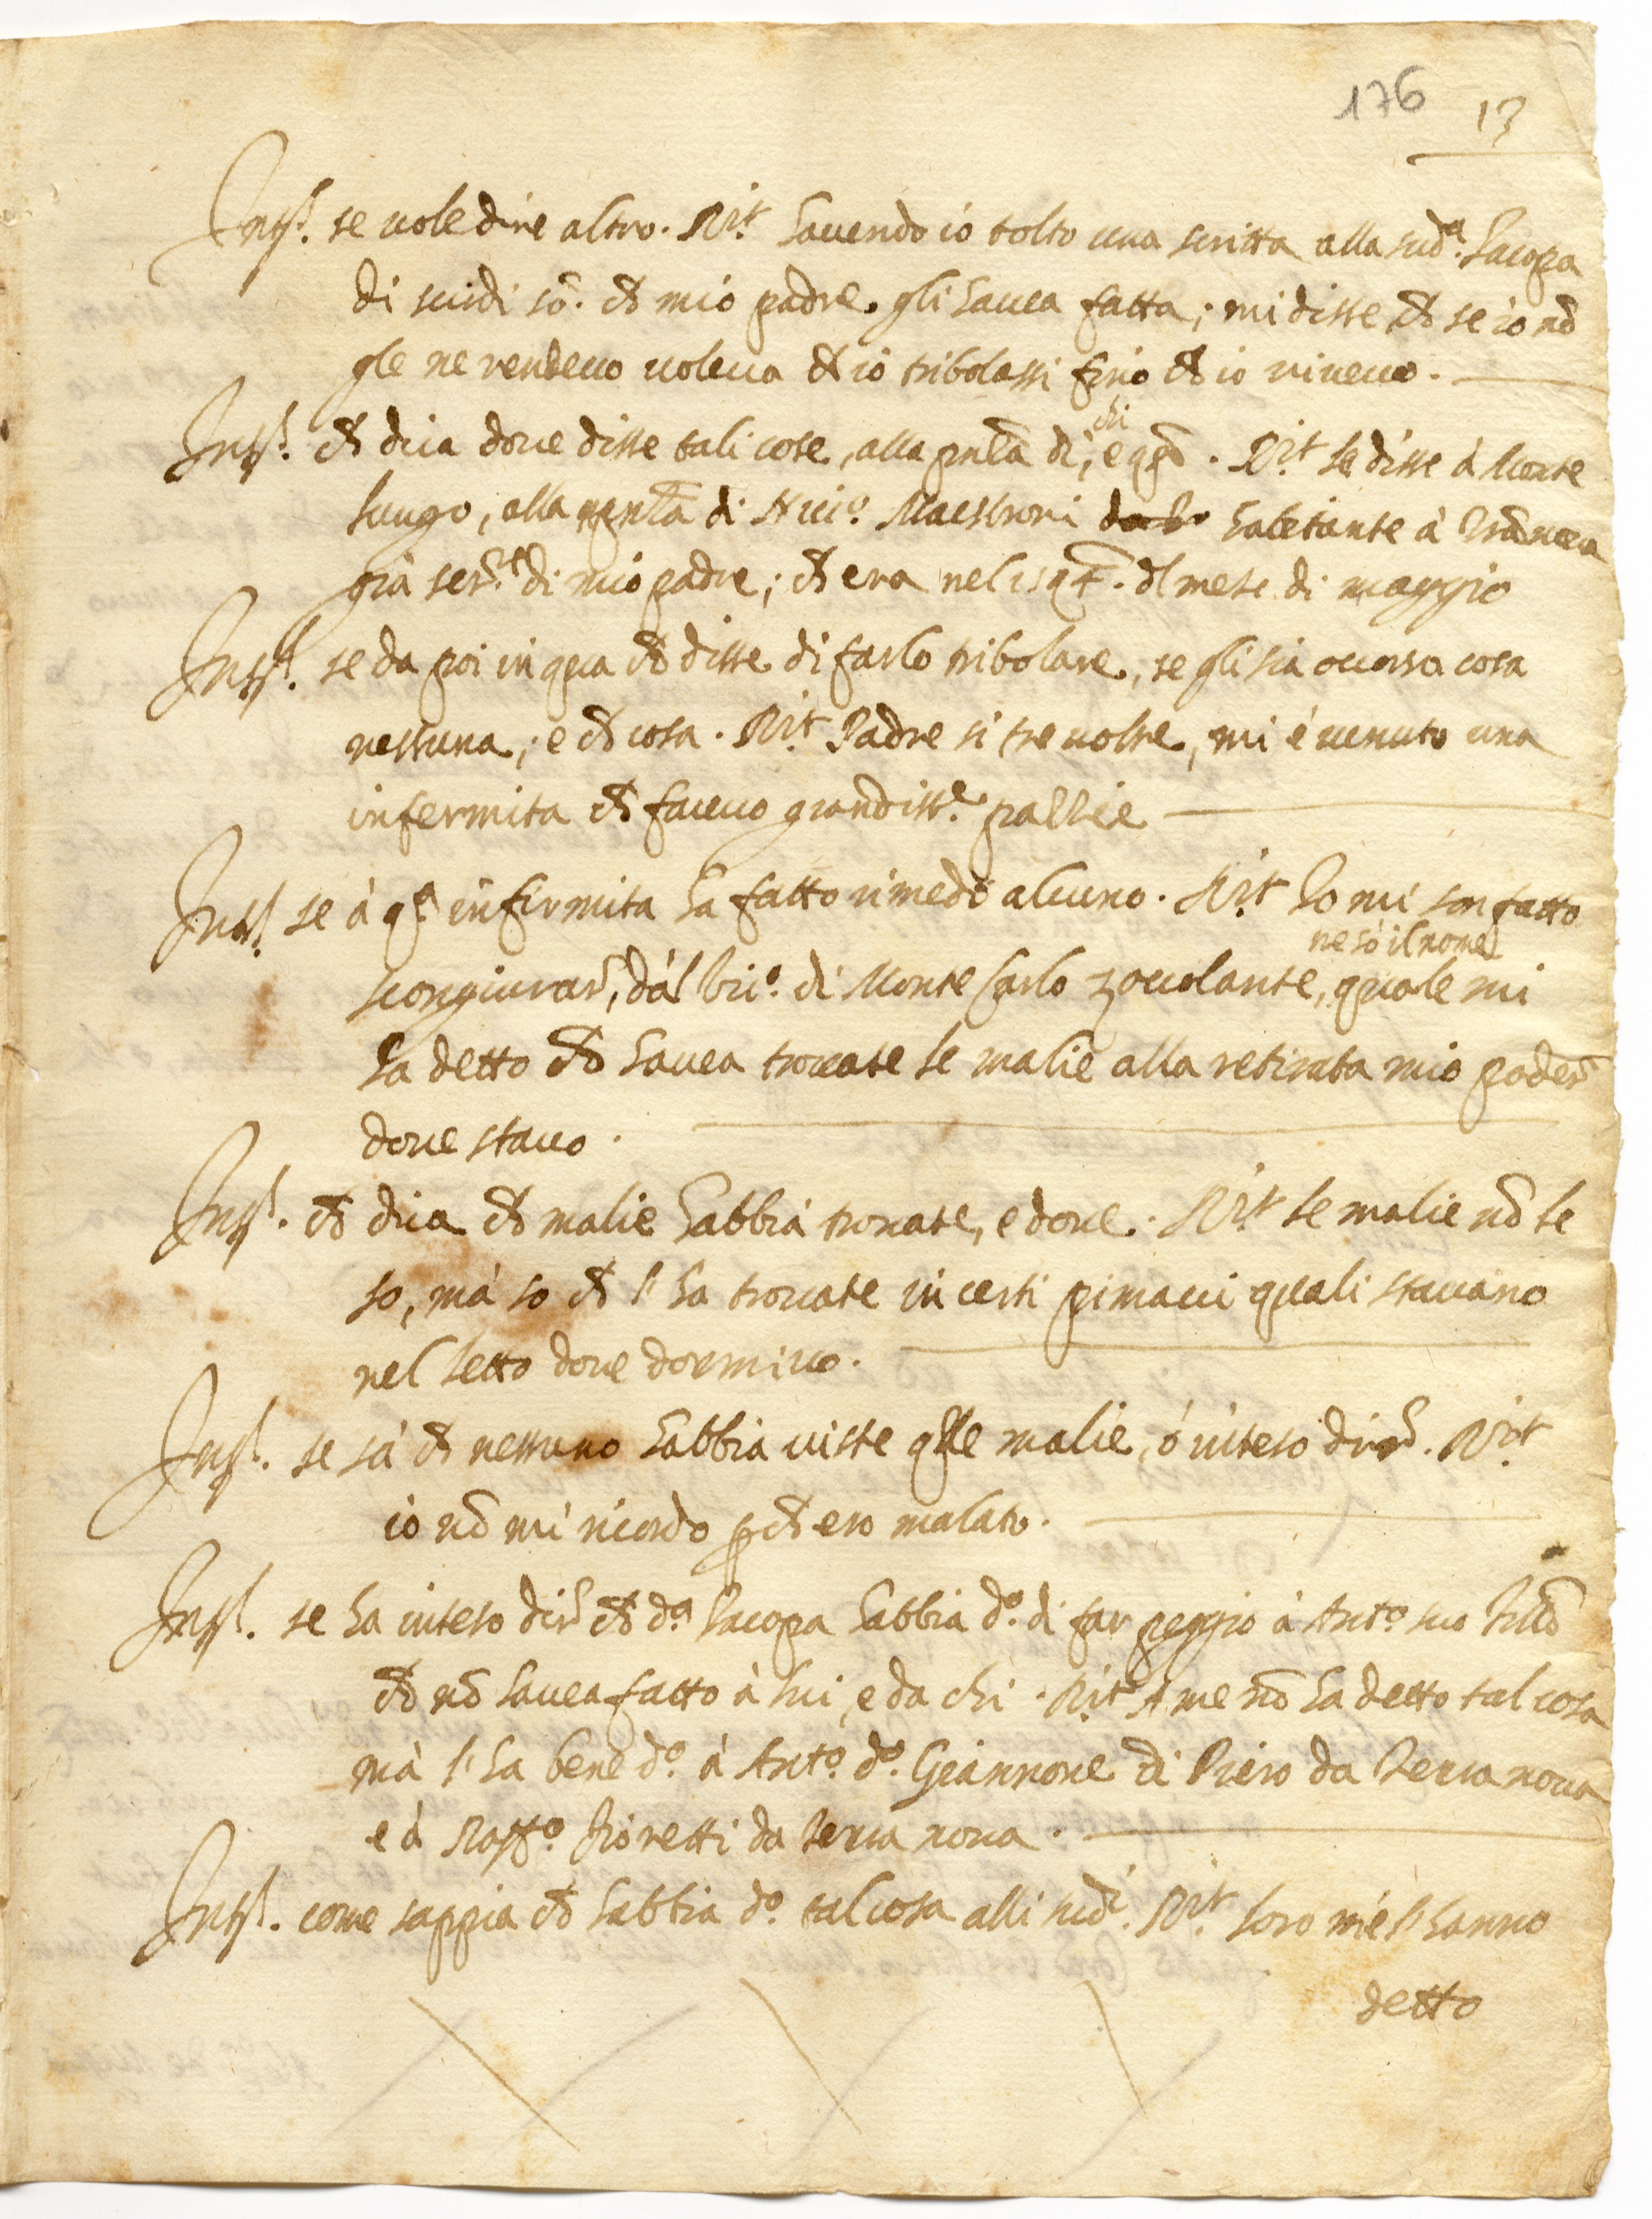 176 13
Intt. se vole dire altro. Rit. havendo io tolto una scritta alla sud.a Iacopa
di scudi 50. ch mio padre gli havea fatta; mi disse ch se io nō
gle ne rendevo voleva ch io tribolassi fino ch io vivevo.
Intt. ch dica dove disse tali cose, alla pn̄tia di chi, e qn̄. Rit. le disse à Monte
lungo, alla pn̄tia di Maestroni habitante à
già ser.te di mio padre; ch era nel 1594. del mese di maggio
Intt. se da poi in qua ch disse di farlo tribolare, se gli sia occorsa cosa
nessuna, e ch cosa. Rit. Padre si tre volte, mi é venuto una
infermita ch facevo grandiss.e pazzie
Intt. se à q.a infirmita ha fatto rimedio alcuno. Rit. Io mi son fatto
scongiurar, dal Vic.o di Monte Carlo zoccolante, ne so il nome quale mi
ha detto ch havea trovate le malie alla retirata mio poder
dove stavo.
Intt. ch dica ch malie habbia trovate, e dove. Rit. le malie nō le
so, mà so ch l'ha trovate in certi pimacci quali stavano
nel letto dove dormivo.
Intt. se sà ch nessuno habbia viste qlle malie, ó inteso dire. Rit.
io nō mi ricordo pch ero malato.
Intt. se ha inteso dir ch d.a Iacopa habbia d.o di far peggio à Ant.o suo
ch nō havea fatto à lui, e da chi. Rit. A me nō ha detto tal cosa
mà l'ha bene d.o à Ant.o d.o Giannone di Piero da Terra nova
e à Raff.o Fioretti da terra nova.
Intt. come sappia ch habbia d.o tal cosa alli sud.i. Rit. loro me l'hanno
detto